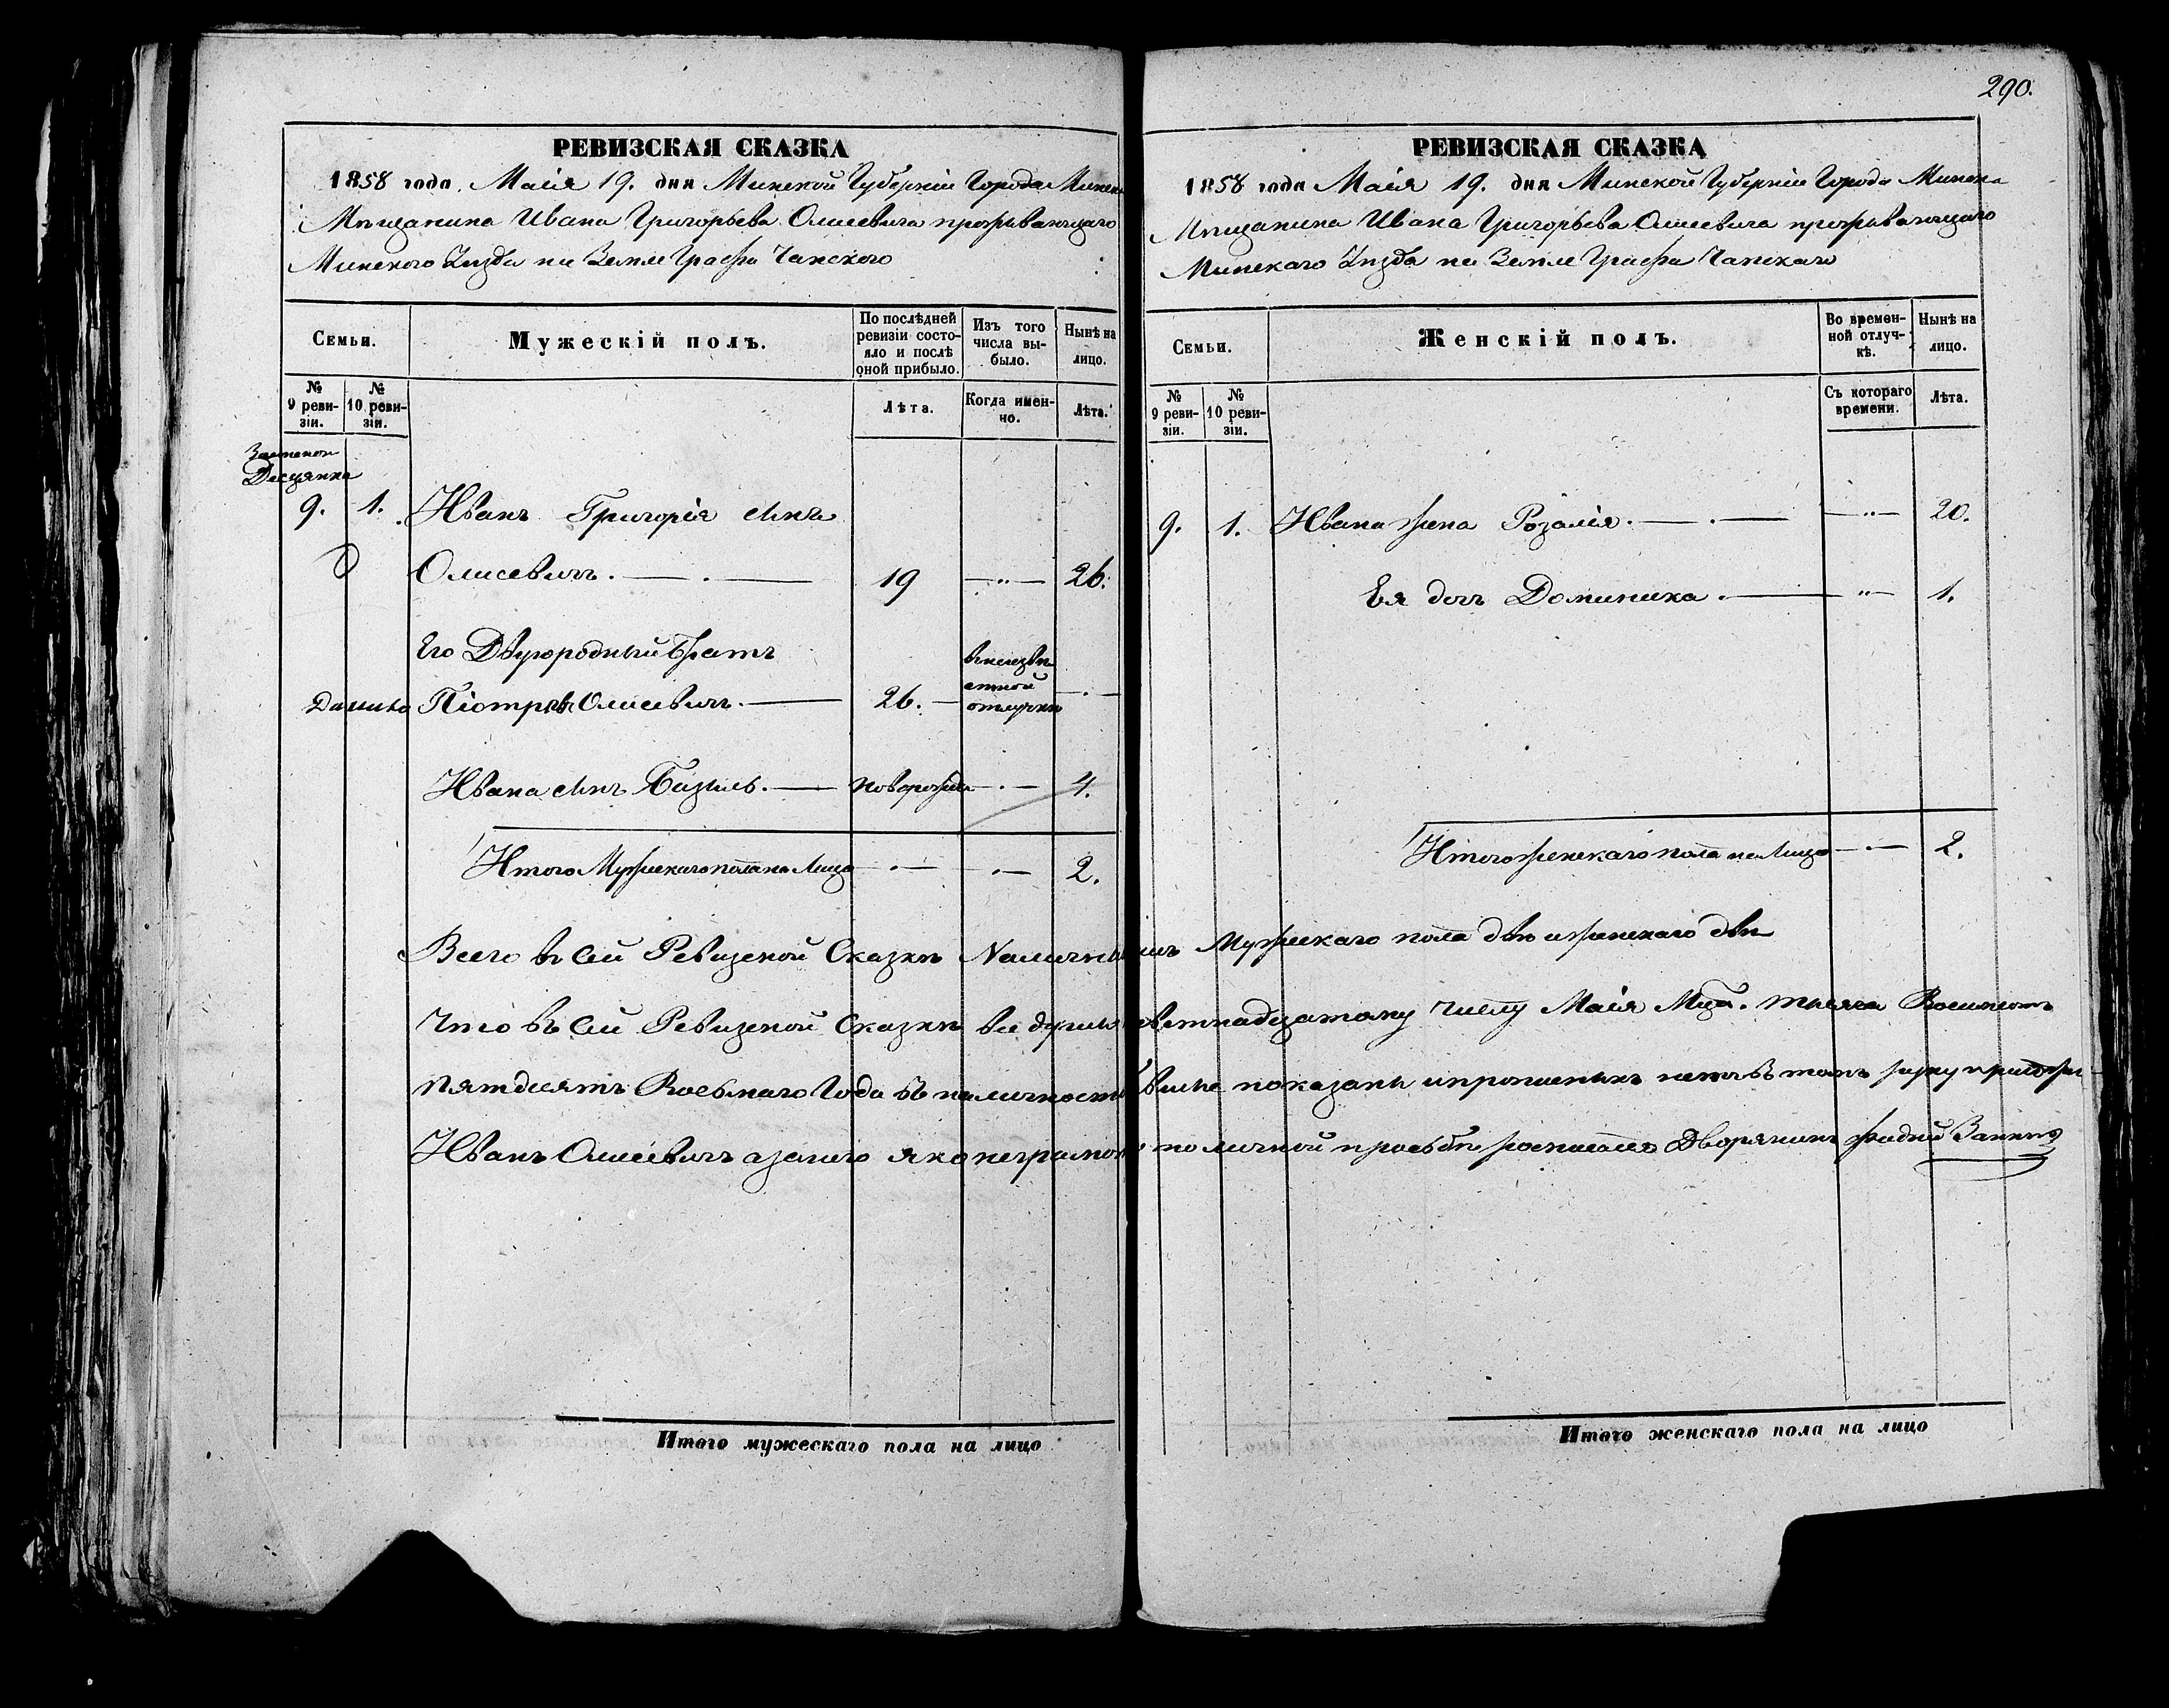 290.
РЕВИЗСКАЯ СКАЗКА
1858 года. Маія 19. дня Минской Губерніи Города Минска
Мѣщанина Ивана Григорьева Олисевича проживающаго
Минского Уѣзда на Земле Графа Чапского
Семьи.
Мужескій полъ.
По послѣдней ревизіи состояло и послѣ оной прибыло.
Изъ того числа выбыло.
Нынѣ на лицо.
№ 9 ревизіи.
№ 10 ревизіи.
Лѣта.
Когда именно.
Лѣта.
9. 1. Иванъ Григорія сынъ
Олисевичъ. 19 — " — 26.
Его Двуюродный Братъ
Піотръ Олисевичъ. 26. в неизвѣстной отлучкѣ
Ивана сынъ Базыль. новорожден 4.
Итого Мужескаго пола на Лицо 2.
РЕВИЗСКАЯ СКАЗКА
1858 года Маія 19. дня Минской Губерніи Города Минска
Мѣщанина Ивана Григорьева Олисевича проживающаго
Минскаго Уѣзда на Земле Графа Чапскаго
Семьи.
Женскій полъ.
Во временной отлучкѣ.
Нынѣ на лицо.
№ 9 ревизіи.
№ 10 ревизіи.
Съ котораго времени.
Лѣта.
9. 1. Ивана жена Розалія. — " — 20.
Ея дочъ Доминика. — " — 1.
Итого женскаго пола на Лицо 2.
Всего въ сей Ревизской Сказкѣ Наличныхъ Мужескаго пола двѣ и женскаго двѣ
Что въ сей Ревизской Сказкѣ все души девятнадцатому числу Маія Мца. тысяча Восемсотъ
пятдесятъ Восьмаго Года въ наличности показаны и прописныхъ нетъ въ томъ руку
Иванъ Олисевичъ а за него яко неграмотно по личной прозьбѣ росписался Дворянинъ
Итого мужескаго пола на лицо
Итого женскаго пола на лицо